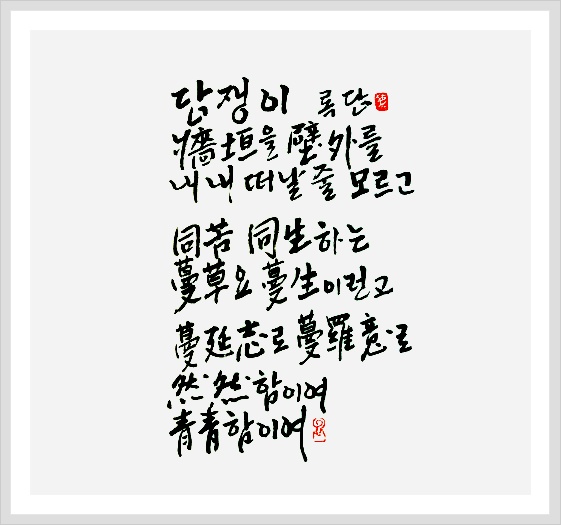 담쟁이 록단
墻垣을 壁 外를
내내 떠날 줄 모르고
同苦 同生하는
蔓草요 蔓生이런고
蔓延志로 蔓羅意로
然然함이여
青青함이여